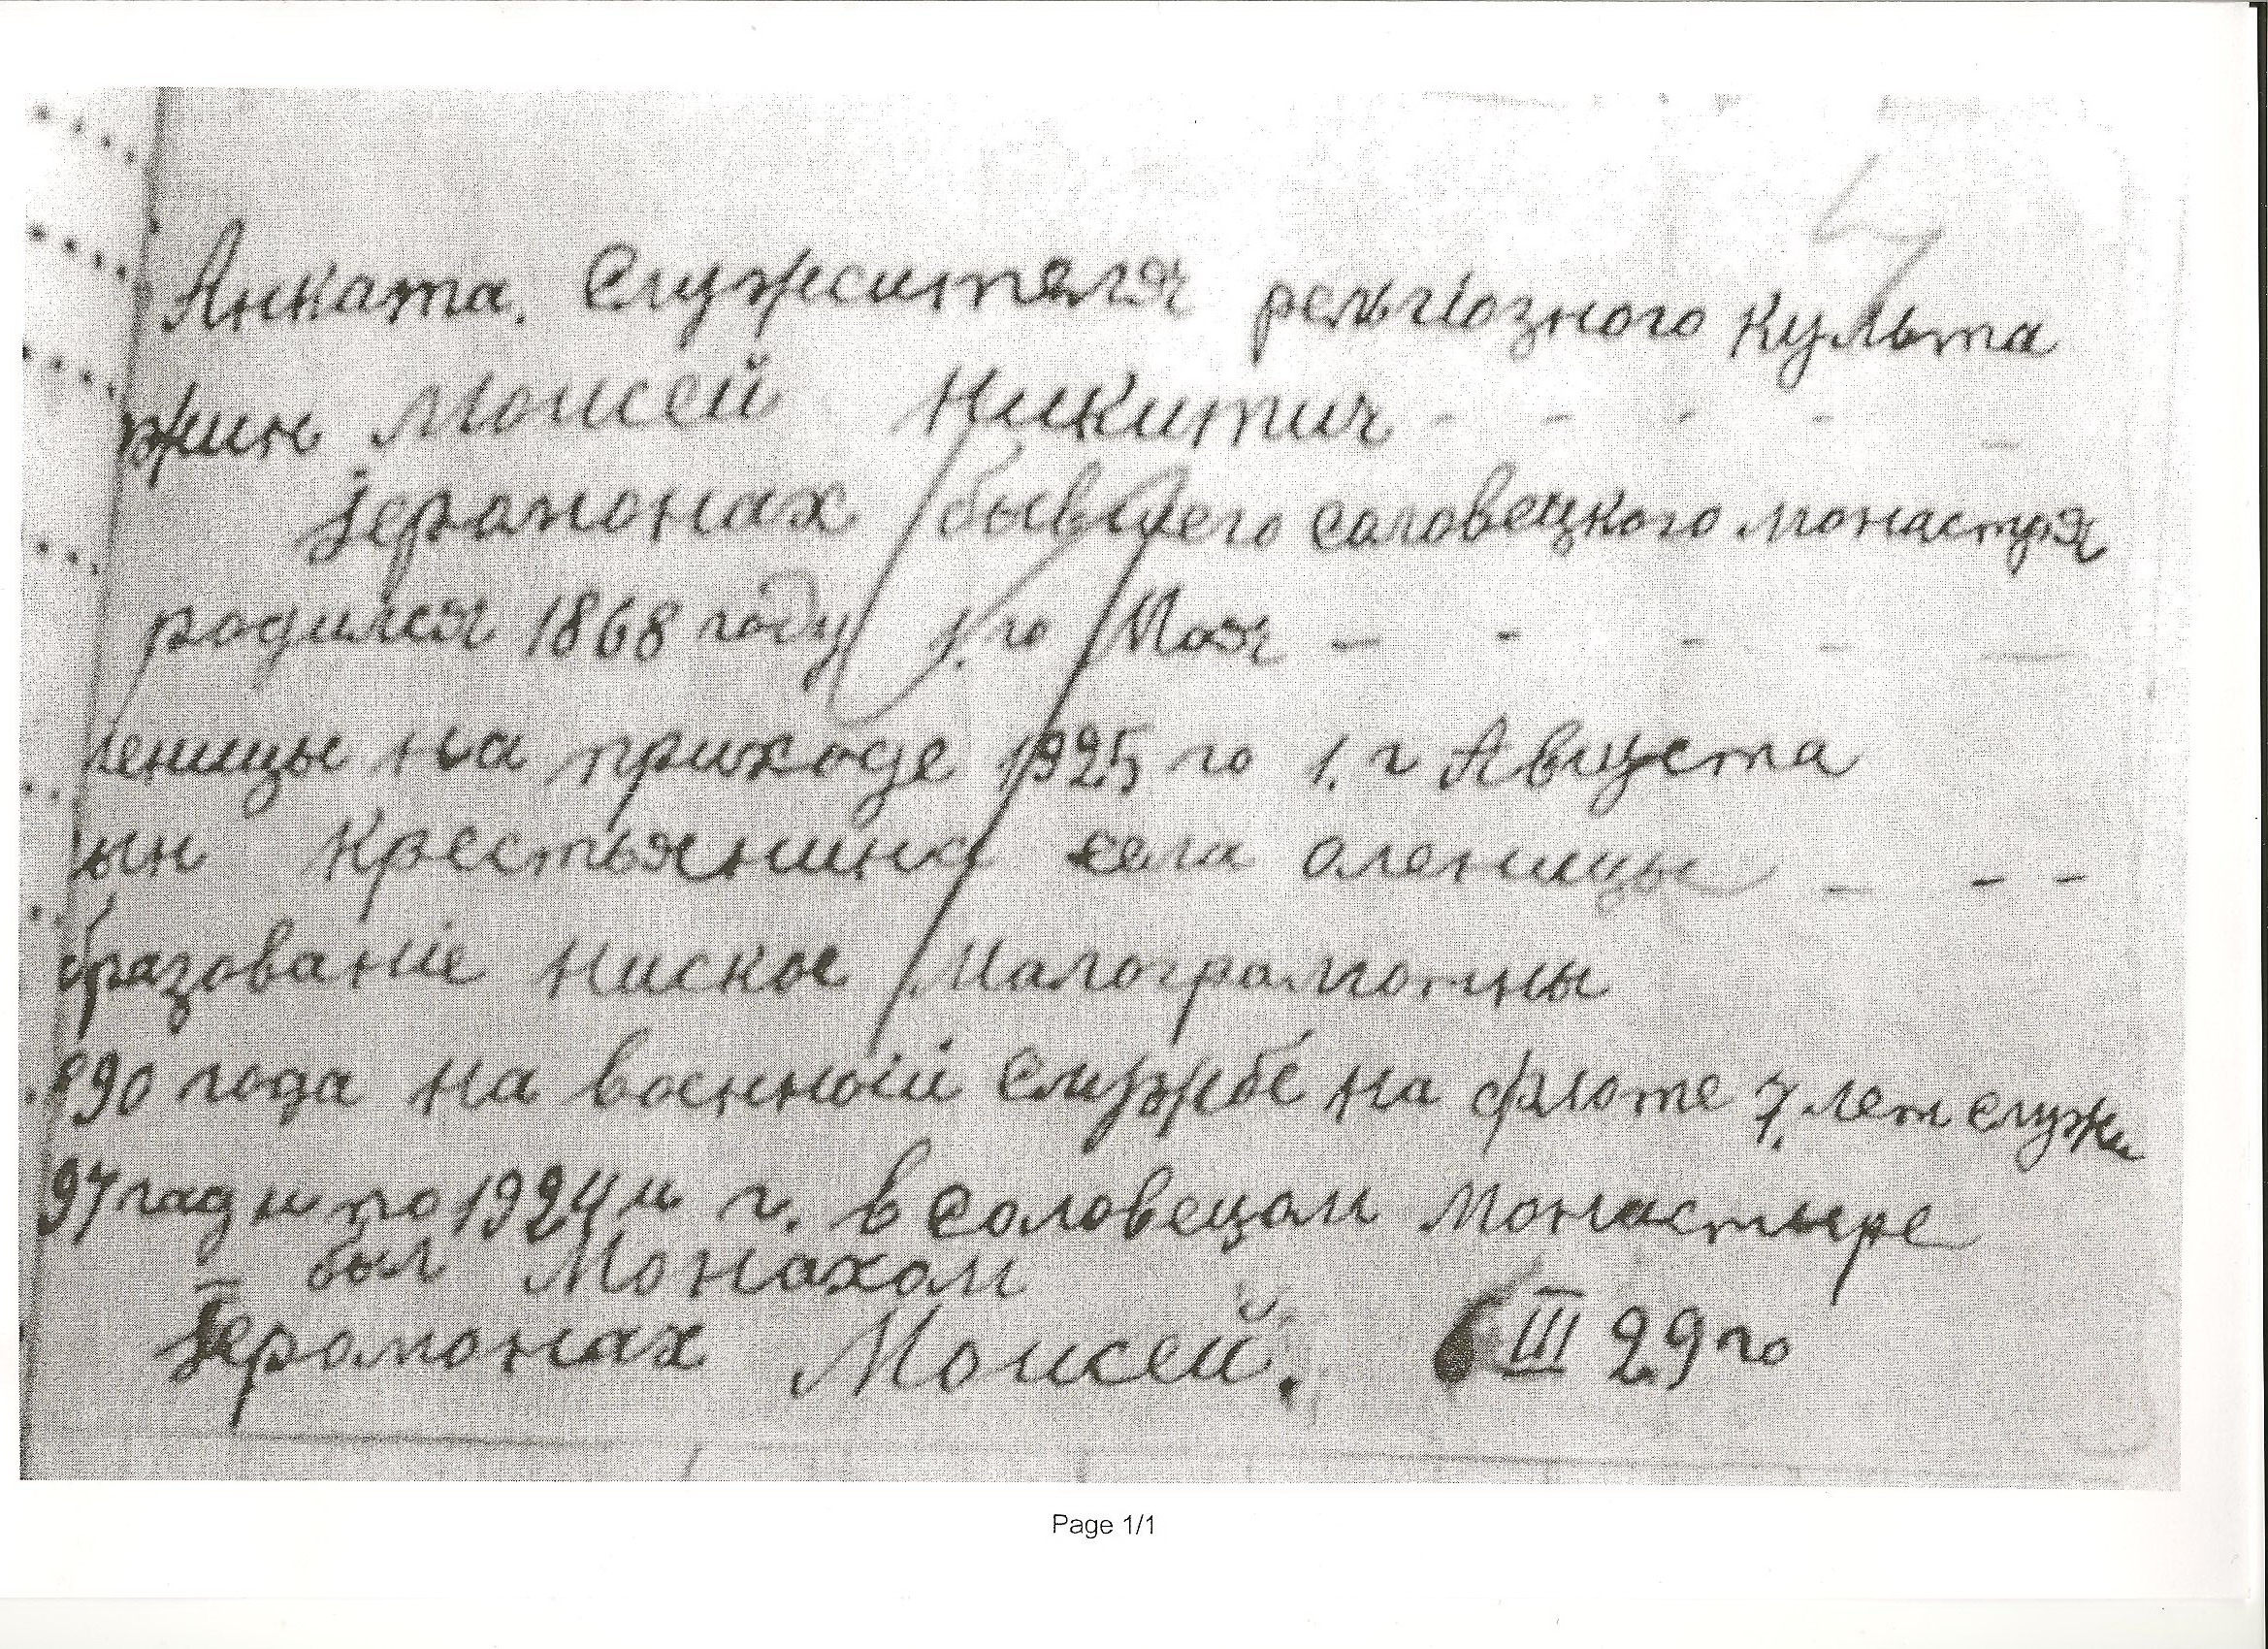 Анката. Служителя религіозного культа
жин Моисей Никитич - - - - -
Іеромонах бывшего Соловецкого монастря
родился 1868 году 1. го Мая - - - - -
леницы на приходе 1925 го 1. г Августа
ын Крестьянина села Оленицы - - -
бразованіе Ниское Малограмотны
890 года на военной Службе на флоте 7. лет служи
97 год и по 1924 и г. в Соловецом Монастыре
был Монахом
Іеромонах Моисей. 6 III 29 го
Page 1/1